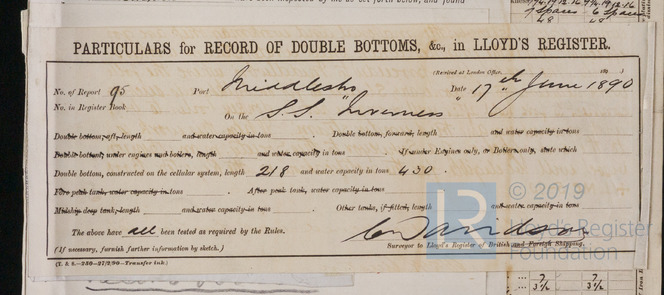 PARTICULARS for RECORD OF DOUBLE BOTTOMS, &c., in LLOYD'S REGISTER.
(Received at London Office, 189 )
No. of Report 95 Port Middlesbro Date 17th June 1890
No. in Register Book On the S.S. "Inverness
Double bottom, aft, length and water capacity in tons . Double bottom, forward, length and water capacity in tons
Double bottom, under engines and boilers, length and water capacity in tons . If under Engines only, or Boilers only, state which
Double bottom, constructed on the cellular system, length 218 and water capacity in tons 430 .
Fore peak tank, water capacity in tons . After peak tank, water capacity in tons
Midship deep tank, length and water capacity in tons . Other tanks, if fitted, length and water capacity in tons
The above have all been tested as required by the Rules. C Davidson
(If necessary, furnish further information by sketch.) Surveyor to Lloyd's Register of British and Foreign Shipping.
LR © 2019
Lloyd's Register
Foundation
7 7
3½ 3½